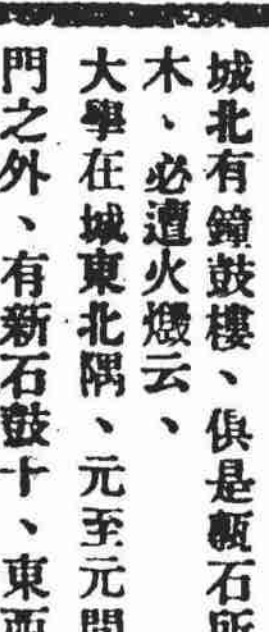 城北有鐘鼓樓、俱是甎石所
木、必遭火燬云、
大學在城東北隅、元至元間
門之外、有新石鼓十、東西